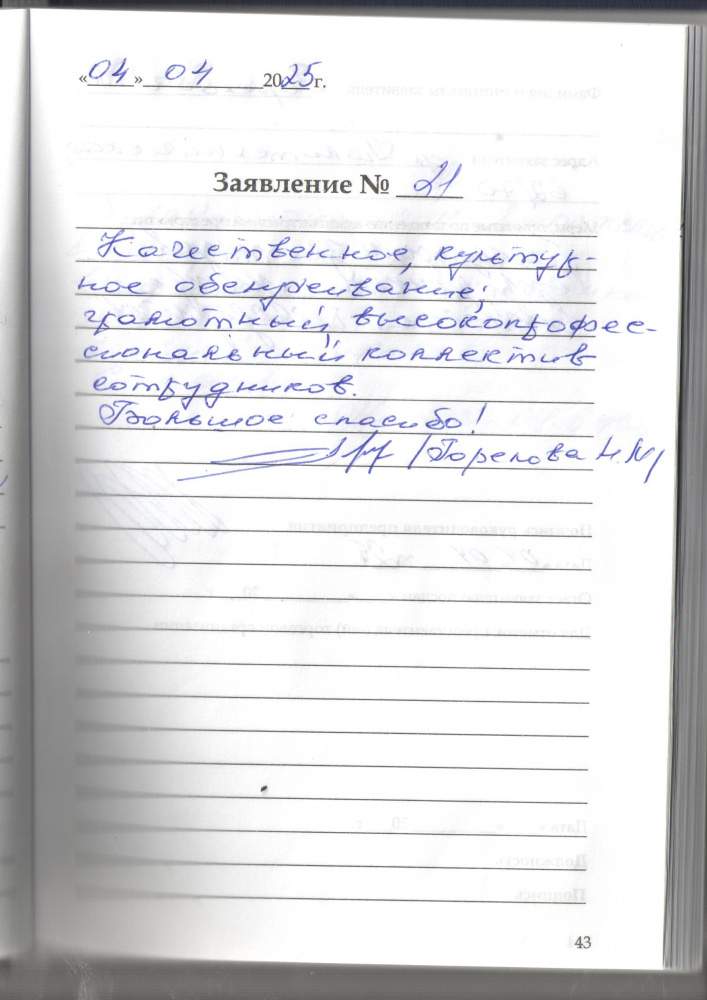 «04» 04 2025 г.
Заявление № 21
Качественное, культур-
ное обслуживание;
грамотный высокопрофес-
сиональный коллектив
сотрудников.
Большое спасибо!
/Горелова Н.М/
43